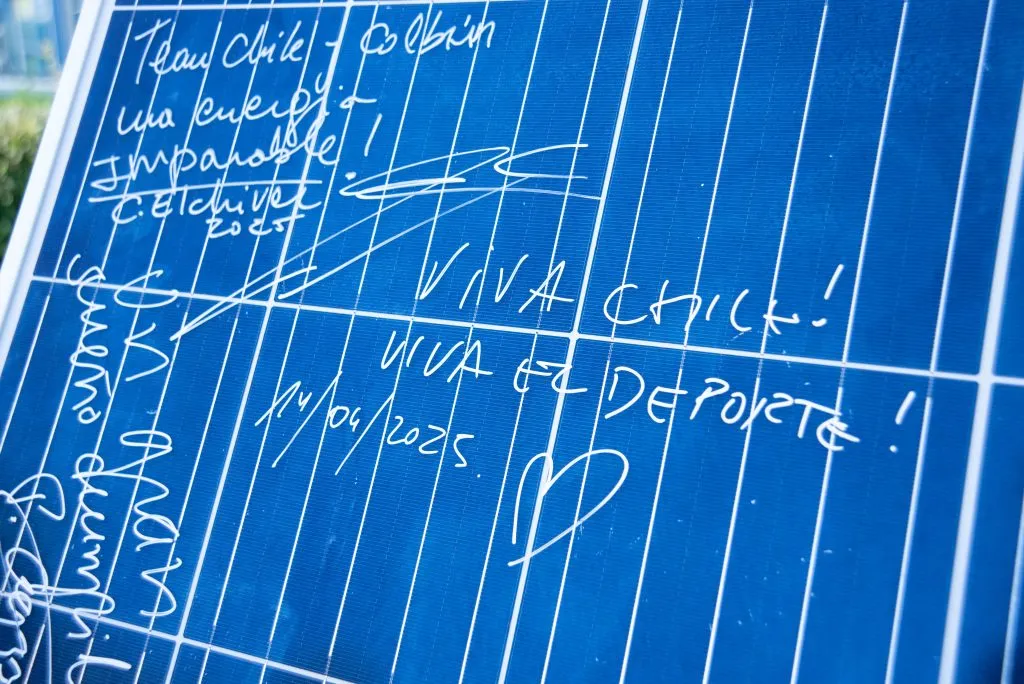 Team Chile - Colbún
una energía
Imparable!
C. Elchiver
2025
VIVA CHILE!
VIVA EL DEPORTE!
14/04/2025.
Un gran
sueño